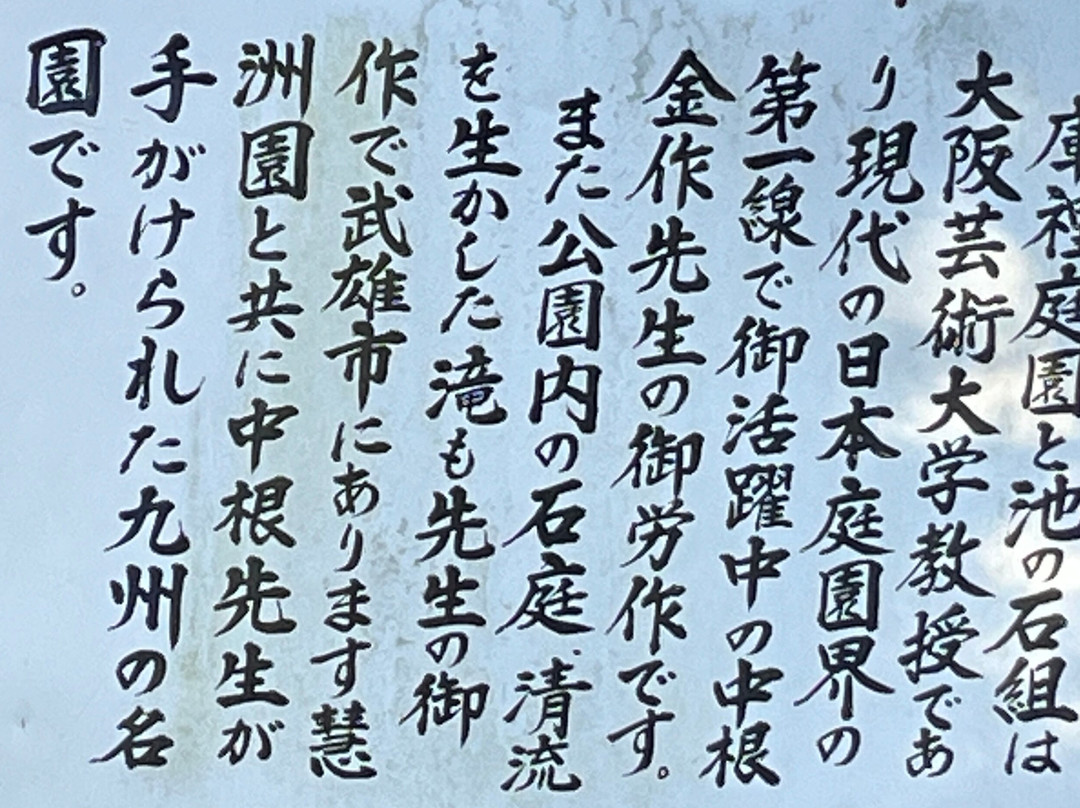 庫裡庭園と池の石組は
大阪芸術大学教授であ
り現代の日本庭園界の
第一線で御活躍中の中根
金作先生の御労作です。
また公園内の石庭、清流
を生かした滝も先生の御
作で武雄市にあります慧
洲園と共に中根先生が
手がけられた九州の名
園です。